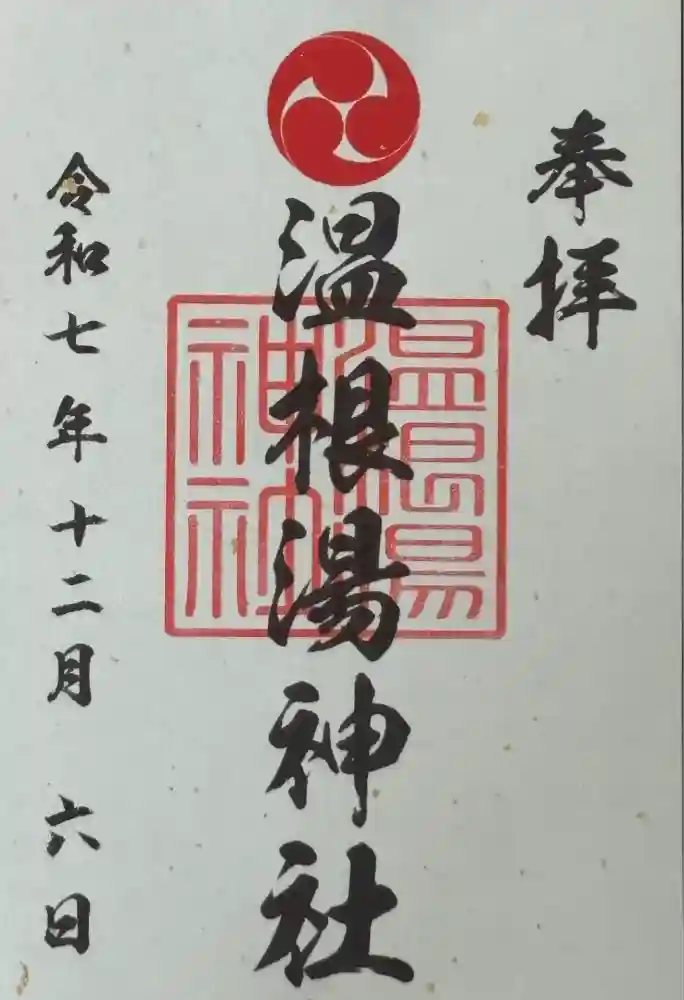 奉拝
温根湯神社
温根湯神社
令和七年十二月 六日